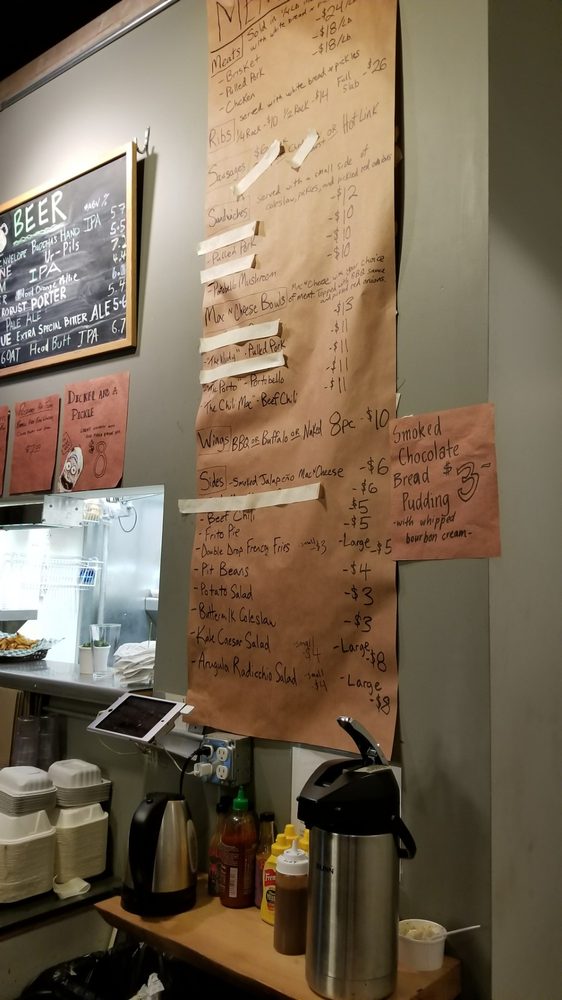 MEN
Meats
Sold in 1/4 LB
with white bread
- Brisket -$24/LB
- Pulled Pork -$18/LB
- Chicken -$18/LB
served with white bread & pickles
Ribs 1/4 Rack -$10 1/2 Rack -$14 Full Slab -$26
Sausages $6 OR Hot Link
Sandwiches served with a small side of
coleslaw, pickles, and pickled red onions
-$12
-$10
- Pulled Pork -$10
-$10
- Portabello Mushroom
Mac 'N' Cheese Bowls Mac 'N' Cheese with your choice
of meat. Topped with BBQ sauce
red onions
-$13
-$11
- Pulled Pork -$11
- Portobello -$11
- The Chili Mac - Beef Chili -$11
Wings BBQ OR Buffalo OR Naked 8pc -$10
Sides - Smoked Jalapeño Mac 'N' Cheese -$6
-$6
- Beef Chili $5
- Frito Pie -$5
- Double Drop French Fries small $3 -Large $5
- Pit Beans -$4
- Potato Salad -$3
- Buttermilk Coleslaw -$3
- Kale Caesar Salad small $4 -Large -$8
- Arugula Radicchio Salad small $4 -Large -$8
BEER
ABV%
ENVELOPE BUDDHAS HAND IPA 5.7
Pils 5.5
IPA 7.2
Blood Orange
ROBUST PORTER
PALE ALE 5.4
EXTRA SPECIAL BITTER ALE 5.6
GOAT Head Butt IPA 6.7
DICKEL AND A
PICKLE
8
Smoked
Chocolate
Bread
Pudding
$3-
-with whipped
bourbon cream-